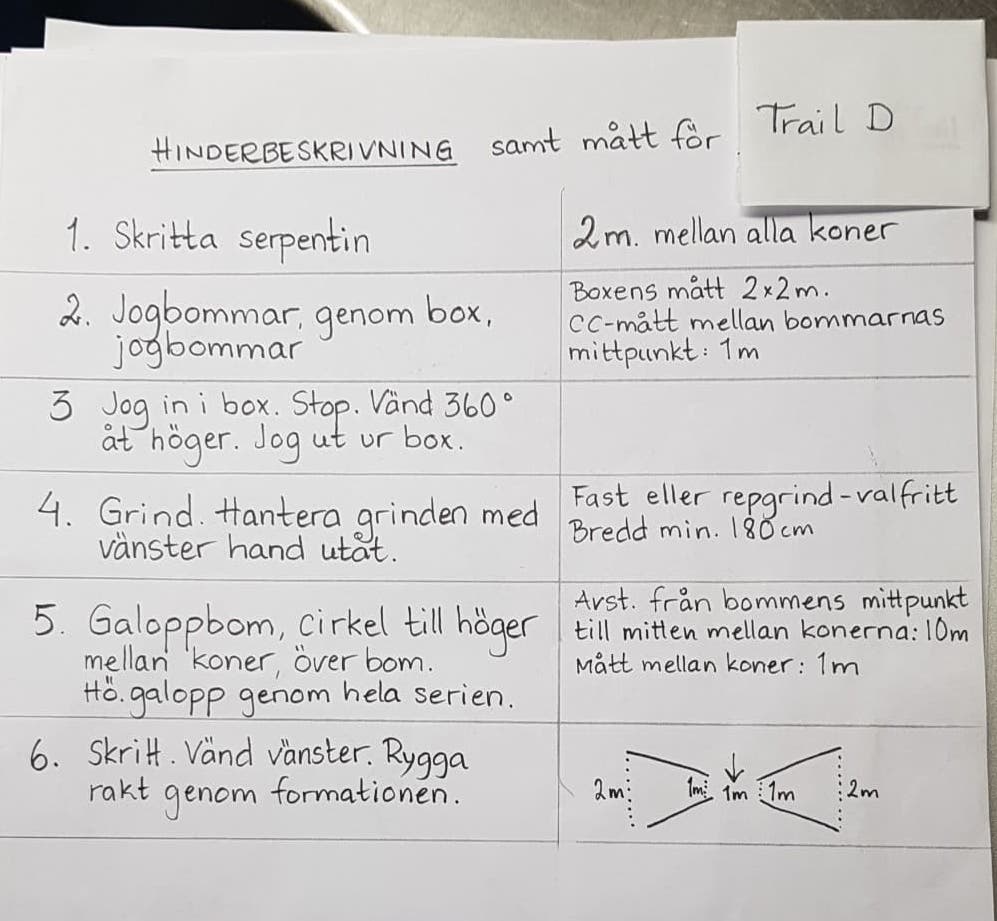 HINDERBESKRIVNING samt mått för Trail D
1. Skritta serpentin
2m. mellan alla koner
2. Jogbommar, genom box,
jogbommar
Boxens mått 2x2m.
CC-mått mellan bommarnas
mittpunkt: 1m
3 Jog in i box. Stop. Vänd 360°
åt höger. Jog ut ur box.
4. Grind. Hantera grinden med
vänster hand utåt.
Fast eller repgrind - valfritt
Bredd min. 180cm
5. Galoppbom, cirkel till höger
mellan koner, över bom.
Hö. galopp genom hela serien.
Avst. från bommens mittpunkt
till mitten mellan konerna: 10m
Mått mellan koner: 1m
6. Skritt. Vänd vänster. Rygga
rakt genom formationen.
2m 1m 1m 1m 2m